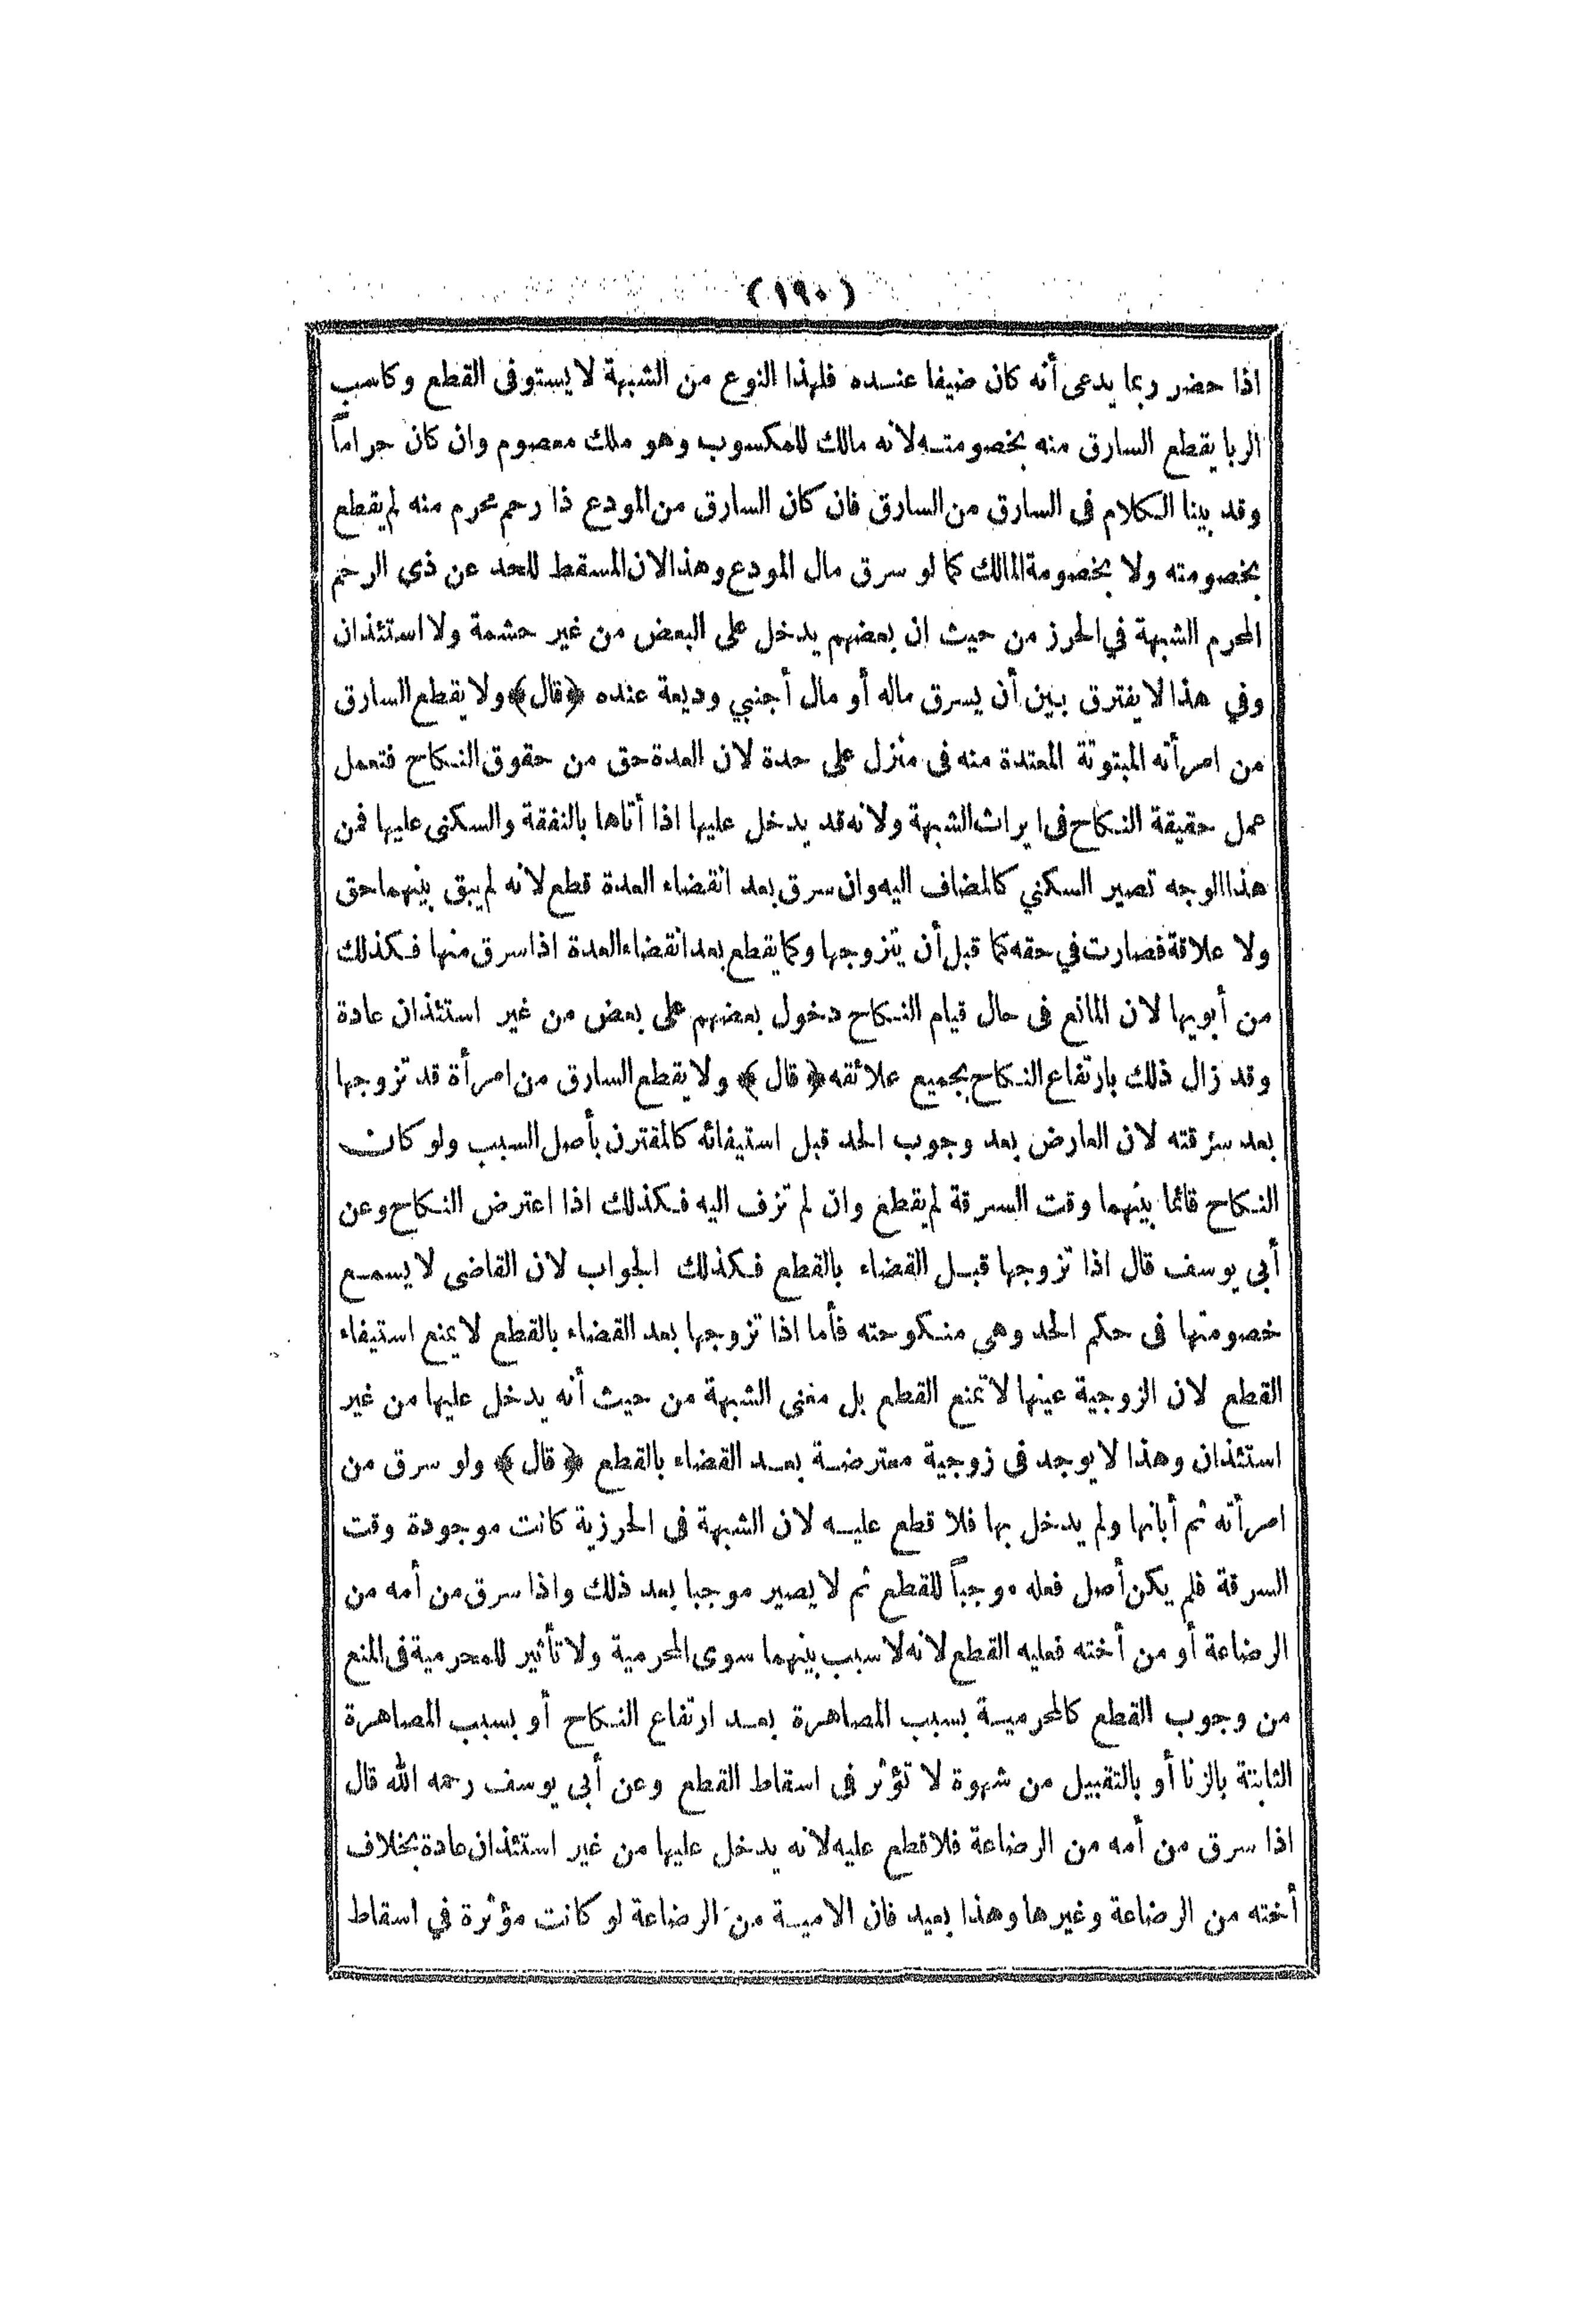 (١٩٠)
اذا حضر ربما يدعى أنه كان ضيفا عنده فلهذا النوع من الشبهة لا يستوفى القطع وكاسب
الربا يقطع السارق منه بخصومته لانه مالك للمكسوب وهو ملك معصوم وان كان حراماً
وقد بينا الكلام فى السارق من السارق فان كان السارق من المودع ذا رحم محرم منه لم يقطع
بخصومته ولا بخصومة المالك كما لو سرق مال المودع وهذا لان المسقط للحد عن ذي الرحم
المحرم الشبهة في الحرز من حيث ان بعضهم يدخل على البعض من غير حشمة ولا استئذان
وفي هذا لا يفترق بين أن يسرق ماله أو مال أجنبي وديعة عنده ﴿قال﴾ ولا يقطع السارق
من امرأته المبتوتة المعتدة منه فى منزل على حدة لان العدة حق من حقوق النكاح فتعمل
عمل حقيقة النكاح فى ايراث الشبهة ولانه قد يدخل عليها اذا أتاها بالنفقة والسكنى عليها فمن
هذا الوجه تصير السكني كالمضاف اليه وان سرق بعد انقضاء العدة قطع لانه لم يبق بينهما حق
ولا علاقة فصارت في حقه كما قبل أن يتزوجها وكما يقطع بعد انقضاء العدة اذا سرق منها فكذلك
من أبويها لان المانع فى حال قيام النكاح دخول بعضهم على بعض من غير استئذان عادة
وقد زال ذلك بارتفاع النكاح بجميع علائقه ﴿قال﴾ ولا يقطع السارق من امرأة قد تزوجها
بعد سرقته لان العارض بعد وجوب الحد قبل استيفائه كالمقترن بأصل السبب ولو كان
النكاح قائما بينهما وقت السرقة لم يقطع وان لم تزف اليه فكذلك اذا اعترض النكاح وعن
أبى يوسف قال اذا تزوجها قبل القضاء بالقطع فكذلك الجواب لان القاضى لا يسمع
خصومتها فى حكم الحد وهى منكوحته فأما اذا تزوجها بعد القضاء بالقطع لا يمنع استيفاء
القطع لان الزوجية عينها لا تمنع القطع بل معنى الشبهة من حيث أنه يدخل عليها من غير
استئذان وهذا لا يوجد فى زوجية معترضة بعد القضاء بالقطع ﴿قال﴾ ولو سرق من
امرأته ثم أبانها ولم يدخل بها فلا قطع عليه لان الشبهة فى الحرزية كانت موجودة وقت
السرقة فلم يكن أصل فعله موجباً للقطع ثم لا يصير موجبا بعد ذلك واذا سرق من أمه من
الرضاعة أو من أخته فعليه القطع لانه لا سبب بينهما سوى المحرمية ولا تأثير للمحرمية فى المنع
من وجوب القطع كالمحرمية بسبب المصاهرة بعد ارتفاع النكاح أو بسبب المصاهرة
الثابتة بالزنا أو بالتقبيل من شهوة لا تؤثر فى اسقاط القطع وعن أبى يوسف رحمه الله قال
اذا سرق من أمه من الرضاعة فلا قطع عليه لانه يدخل عليها من غير استئذان عادة بخلاف
أخته من الرضاعة وغيرها وهذا بعيد فان الامية من الرضاعة لو كانت مؤثرة في اسقاط